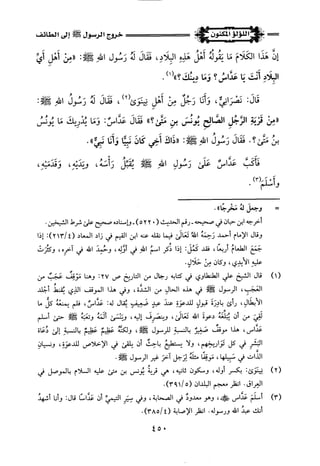 اللؤلؤ المكنون
خروج الرسول ﷺ إلى الطائف
إن هذا الكلام ما يقوله أهل هذه البلاد، فقال له رسول الله ﷺ: «من أهل أي
البلاد أنت يا عداس؟ وما دينك؟»(١).
قال: نصراني، وأنا رجل من أهل نينوى(٢)، فقال له رسول الله ﷺ:
«من قرية الرجل الصالح يونس بن متى؟» فقال عداس: وما يدريك ما يونس
بن متى؟. فقال رسول الله ﷺ: «ذاك أخي كان نبيا وأنا نبي».
فأكب عداس على رسول الله ﷺ يقبل رأسه، ويديه، وقدميه،
وأسلم(٣).
= وجعل له مخرجا».
أخرجه ابن حبان في صحيحه - رقم الحديث (٥٢٢٠)، وإسناده صحيح على شرط الشيخين.
وقال الإمام أحمد رحمه الله تعالى فيما نقله عنه ابن القيم في زاد المعاد (٢١٣/٤): إذا
جمع الطعام أربعا، فقد كمل: إذا ذكر اسم الله في أوله، وحمد الله في آخره، وكثرت
عليه الأيدي، وكان من حلال.
(١) قال الشيخ علي الطنطاوي في كتابه رجال من التاريخ ص ٢٧: وهنا موقف عجب من
العجب، الرسول ﷺ في هذه الحال من الشدة، وفي هذا الموقف الذي يفقد أجلد
الأبطال، رأى بادرة قبول للدعوة عند عبد ضعيف يقال له: عداس، فلم يمنعه كل ما
لقي من أن يبلغه دعوة الله تعالى، وينصرف إليه، وينسى ألمه وتعبه ﷺ حتى أسلم
عداس، هذا موقف صغير بالنسبة للرسول ﷺ، ولكنه عظيم عظيم بالنسبة إلى دعاة
البشر في كل تواريخهم، ولا يستطيع باحث أن يلقى في الإخلاص للدعوة، ونسيان
الذات في سبيلها، موقفا مثله لرجل آخر غير الرسول ﷺ.
(٢) نينوى: بكسر أوله، وسكون ثانيه، هي قرية يونس بن متى عليه السلام بالموصل في
العراق. انظر معجم البلدان (٣٩١/٥).
(٣) أسلم عداس ﷺ، وهو معدود في الصحابة، وفي سير التيمي أن عداسا قال: وأنا أشهد
أنك عبد الله ورسوله. انظر الإصابة (٣٨٥/٤).
٤٥٠